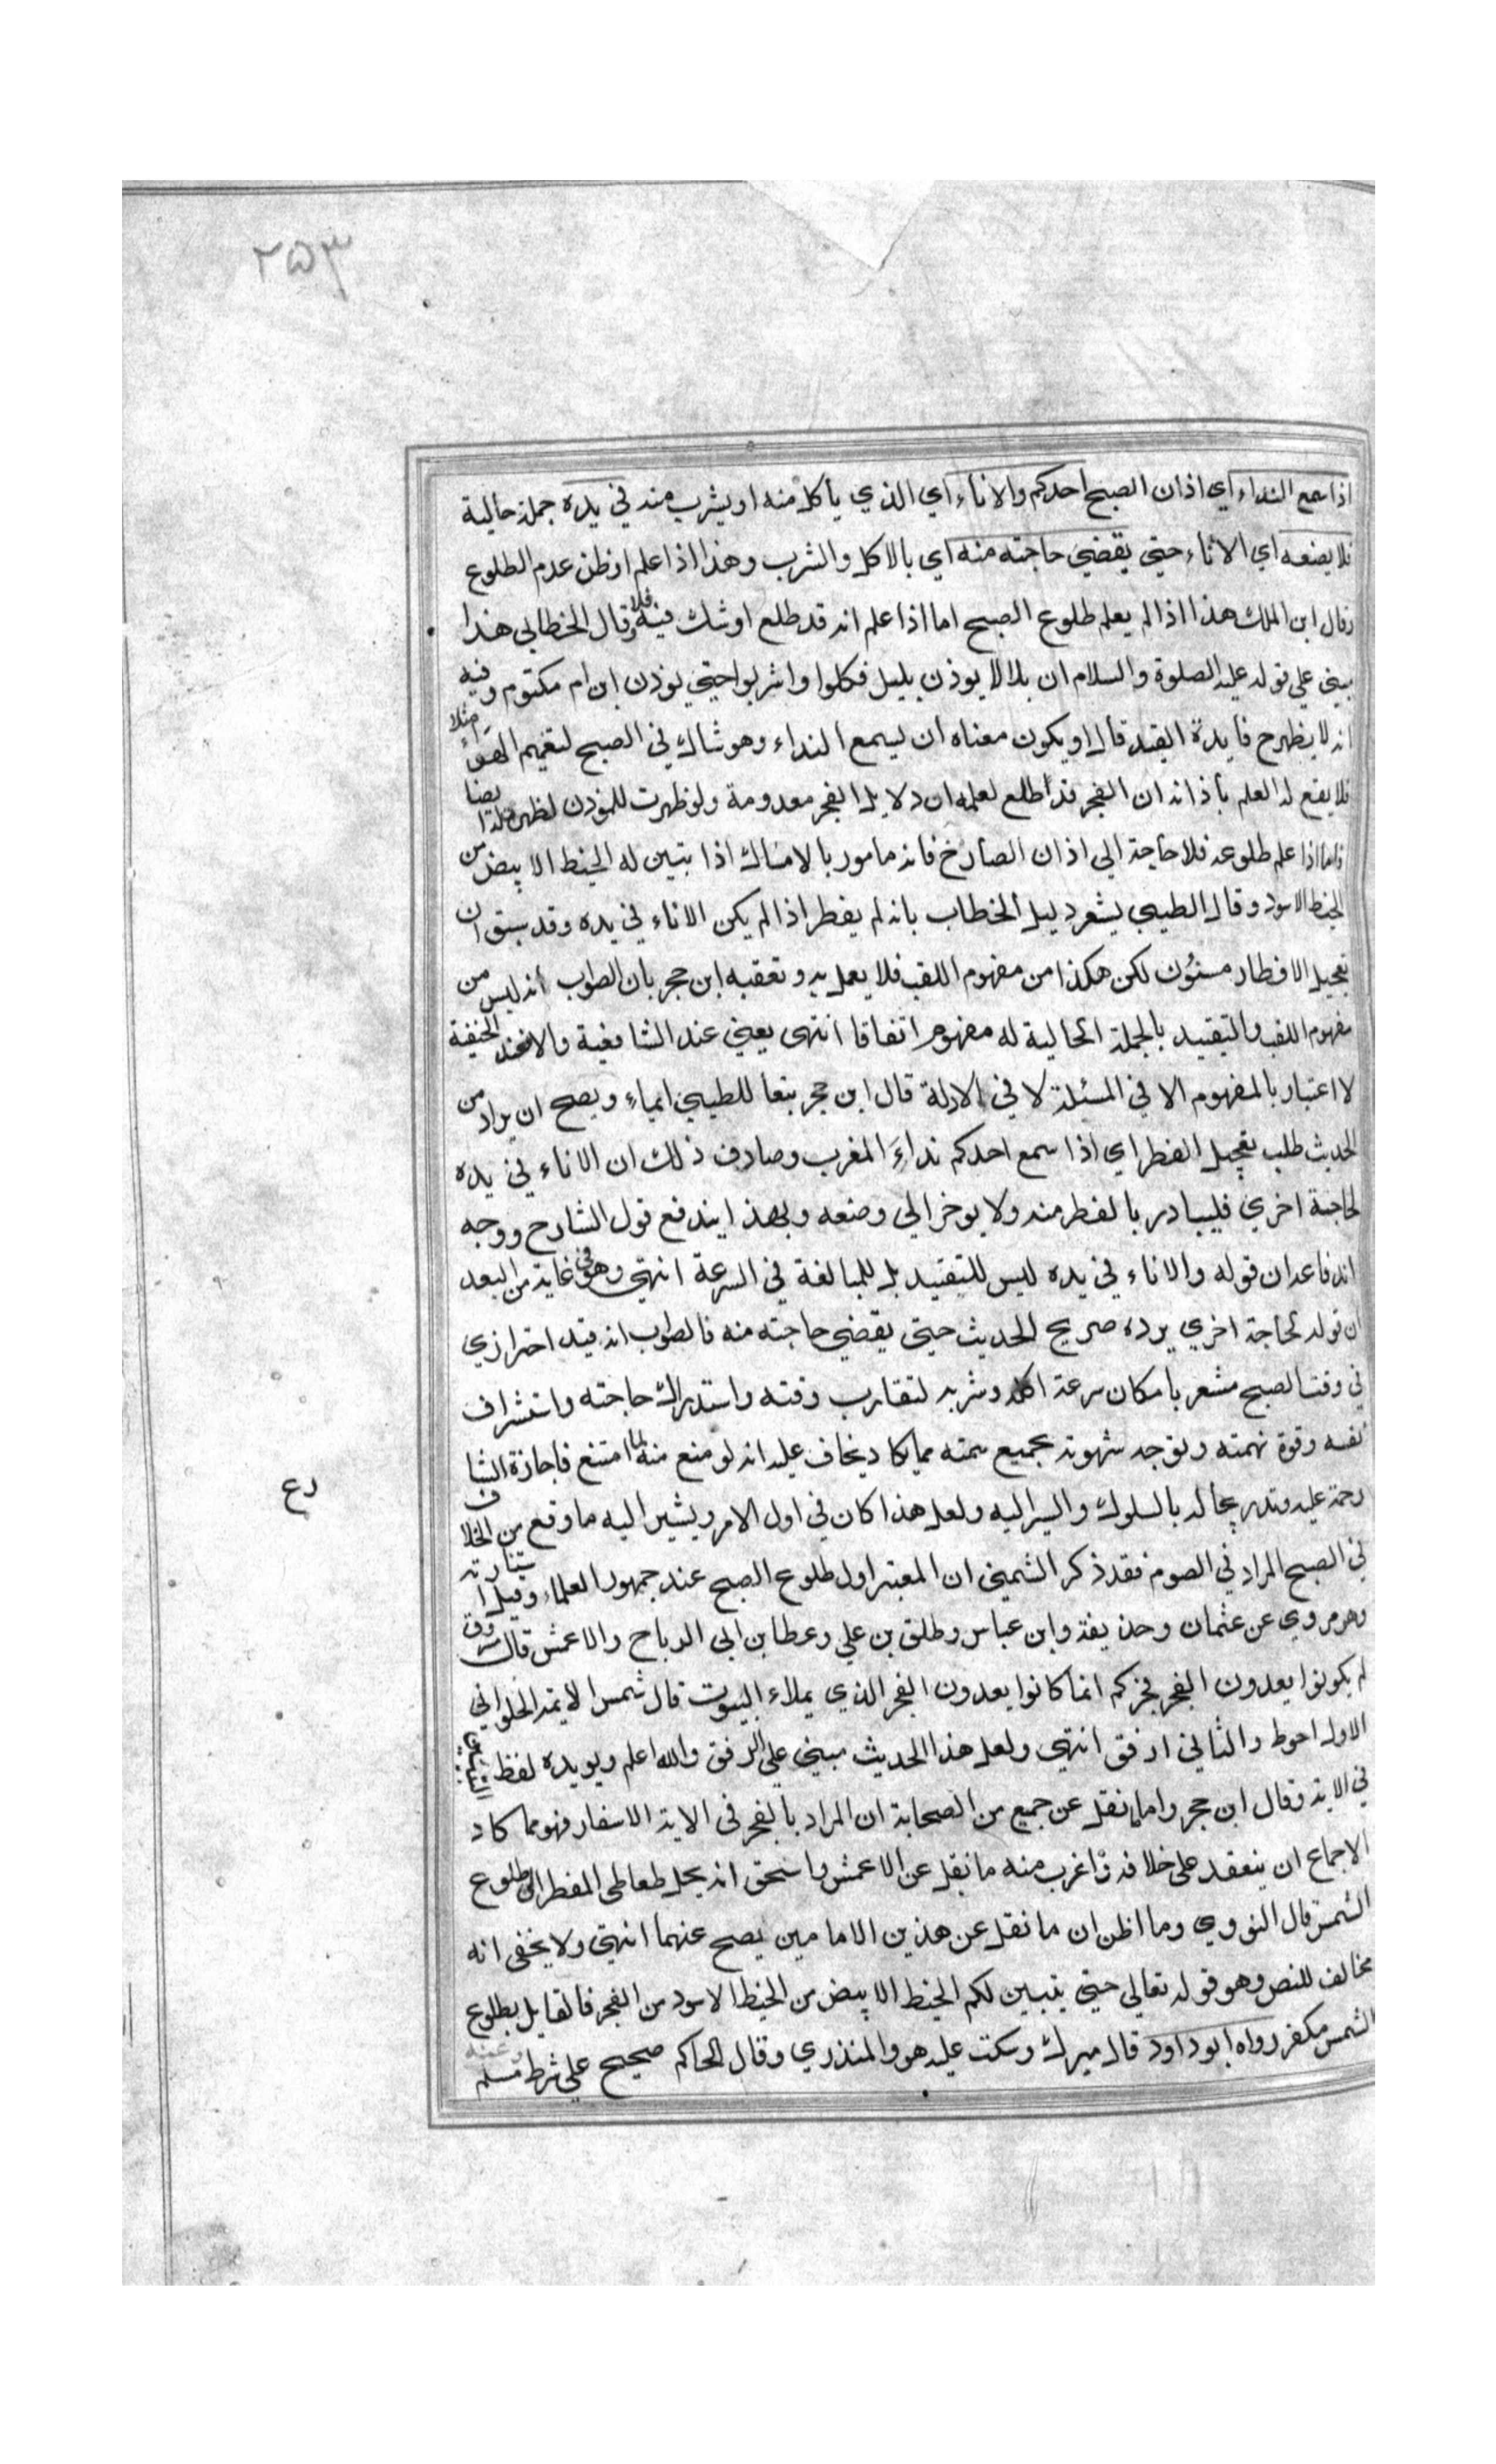 ٢٥٣
اذا سمع النداء اي اذان الصبح احدكم والاناء اي الذي ياكل منه او يشرب منه في يده جملة حالية
فلا يضعه اي الاناء حتي يقضي حاجته منه اي بالاكل والشرب وهذا اذا علم او ظن عدم الطلوع
وقال ابن الملك هذا اذا لم يعلم طلوع الصبح اما اذا علم انه قد طلع او شك فيه فلا وقال الخطابي هذا
مبني علي قوله عليه الصلوة والسلام ان بلالا يوذن بليل فكلوا واشربوا حتي يوذن ابن ام مكتوم وفيه
انه لا يظهر ح فايدة القيد قال او يكون معناه ان يسمع النداء وهو شاك في الصبح لتغيم الهواء مثلا
فلا يقع له العلم باذانه ان الفجر قد طلع لعلمه ان دلايل الفجر معدومة ولو ظهرت للموذن لظهرت له ايضا
فاما اذا علم طلوعه فلا حاجة الي اذان الصارخ فانه مامور بالامساك اذا تبين له الخيط الابيض من
الخيط الاسود وقال الطيبي يشعر دليل الخطاب بانه لم يفطر اذا لم يكن الاناء في يده وقد سبق ان
تعجيل الافطار مسنون لكن هكذا من مفهوم اللقب فلا يعمل به وتعقبه ابن حجر بان الصواب انه ليس من
مفهوم اللقب والتقييد بالجملة الحالية له مفهوم اتفاقا انتهى يعني عند الشافعية والا فعند الحنفية
لا اعتبار بالمفهوم الا في المسئلة لا في الادلة قال ابن حجر تبعا للطيبي ايماء ويصح ان يراد من
الحديث طلب تعجيل الفطر اي اذا سمع احدكم نداء المغرب وصادف ذلك ان الاناء في يده
لحاجة اخري فليبادر بالفطر منه ولا يوخر الي وضعه وبهذا يندفع قول الشارح ووجه
اندفاعه ان قوله والاناء في يده ليس للتقييد بل للمبالغة في السرعة انتهى وهو في غاية من البعد
ان قوله لحاجة اخري يرده صريح الحديث حتي يقضي حاجته منه فالصواب انه قيد احترازي
في وقت الصبح مشعر بامكان سرعة اكله وشربه لتقارب وقته واستدراك حاجته واستشراف
نفسه وقوة نهمته وتوجه شهوته بجميع همته مما يكاد يخاف عليه انه لو منع منه لما امتنع فاجازة الشا
رحمة عليه وتدريجا له بالسلوك والسير اليه ولعل هذا كان في اول الامر ويشير اليه ما وقع من الخلاف
في الصبح المراد في الصوم فقد ذكر الشمني ان المعتبر اول طلوع الصبح عند جمهور العلماء وقيل استنارته
وهو مروي عن عثمان وحذيفة وابن عباس وطلق بن علي وعطا بن ابي الرباح والاعمش قال مسروق
لم يكونوا يعدون الفجر فجركم انما كانوا يعدون الفجر الذي يملاء البيوت قال شمس الايمة الحلواني
الاول احوط والثاني ارفق انتهي ولعل هذا الحديث مبني علي الرفق والله اعلم ويويده لفظ التبيين
في الاية وقال ابن حجر واما ما نقل عن جميع من الصحابة ان المراد بالفجر في الاية الاسفار فهو مما كاد
الاجماع ان ينعقد علي خلافه واغرب منه ما نقل عن الاعمش واسحق انه يحل طعاطي المفطر الي طلوع
الشمس قال النووي وما اظن ان ما نقل عن هذين الامامين يصح عنهما انتهي ولا يخفى انه
مخالف للنص وهو قوله تعالي حتي يتبين لكم الخيط الابيض من الخيط الاسود من الفجر فالقايل بطلوع
الشمس مكفر رواه ابو داود قال ميرك وسكت عليه هو والمنذري وقال الحاكم صحيح علي شرط مسلم
وعنه